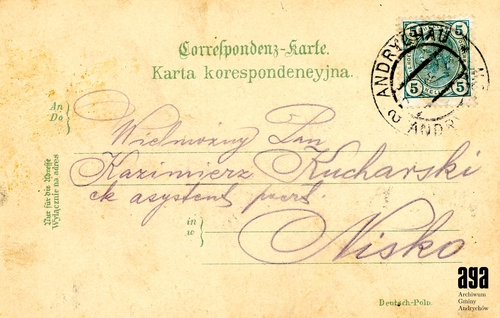 Correspondenz-Karte.
Karta korespondencyjna.
5 5
5 5
ANDRYCHAU
ANDRY
An
Do
Wielmożny Pan
Kazimierz Kucharski
ck asystent
in
w
Nisko
Nur für die Adresse
Wyłącznie na adres
Deutsch-Poln.
aga
Archiwum
Gminy
Andrychów